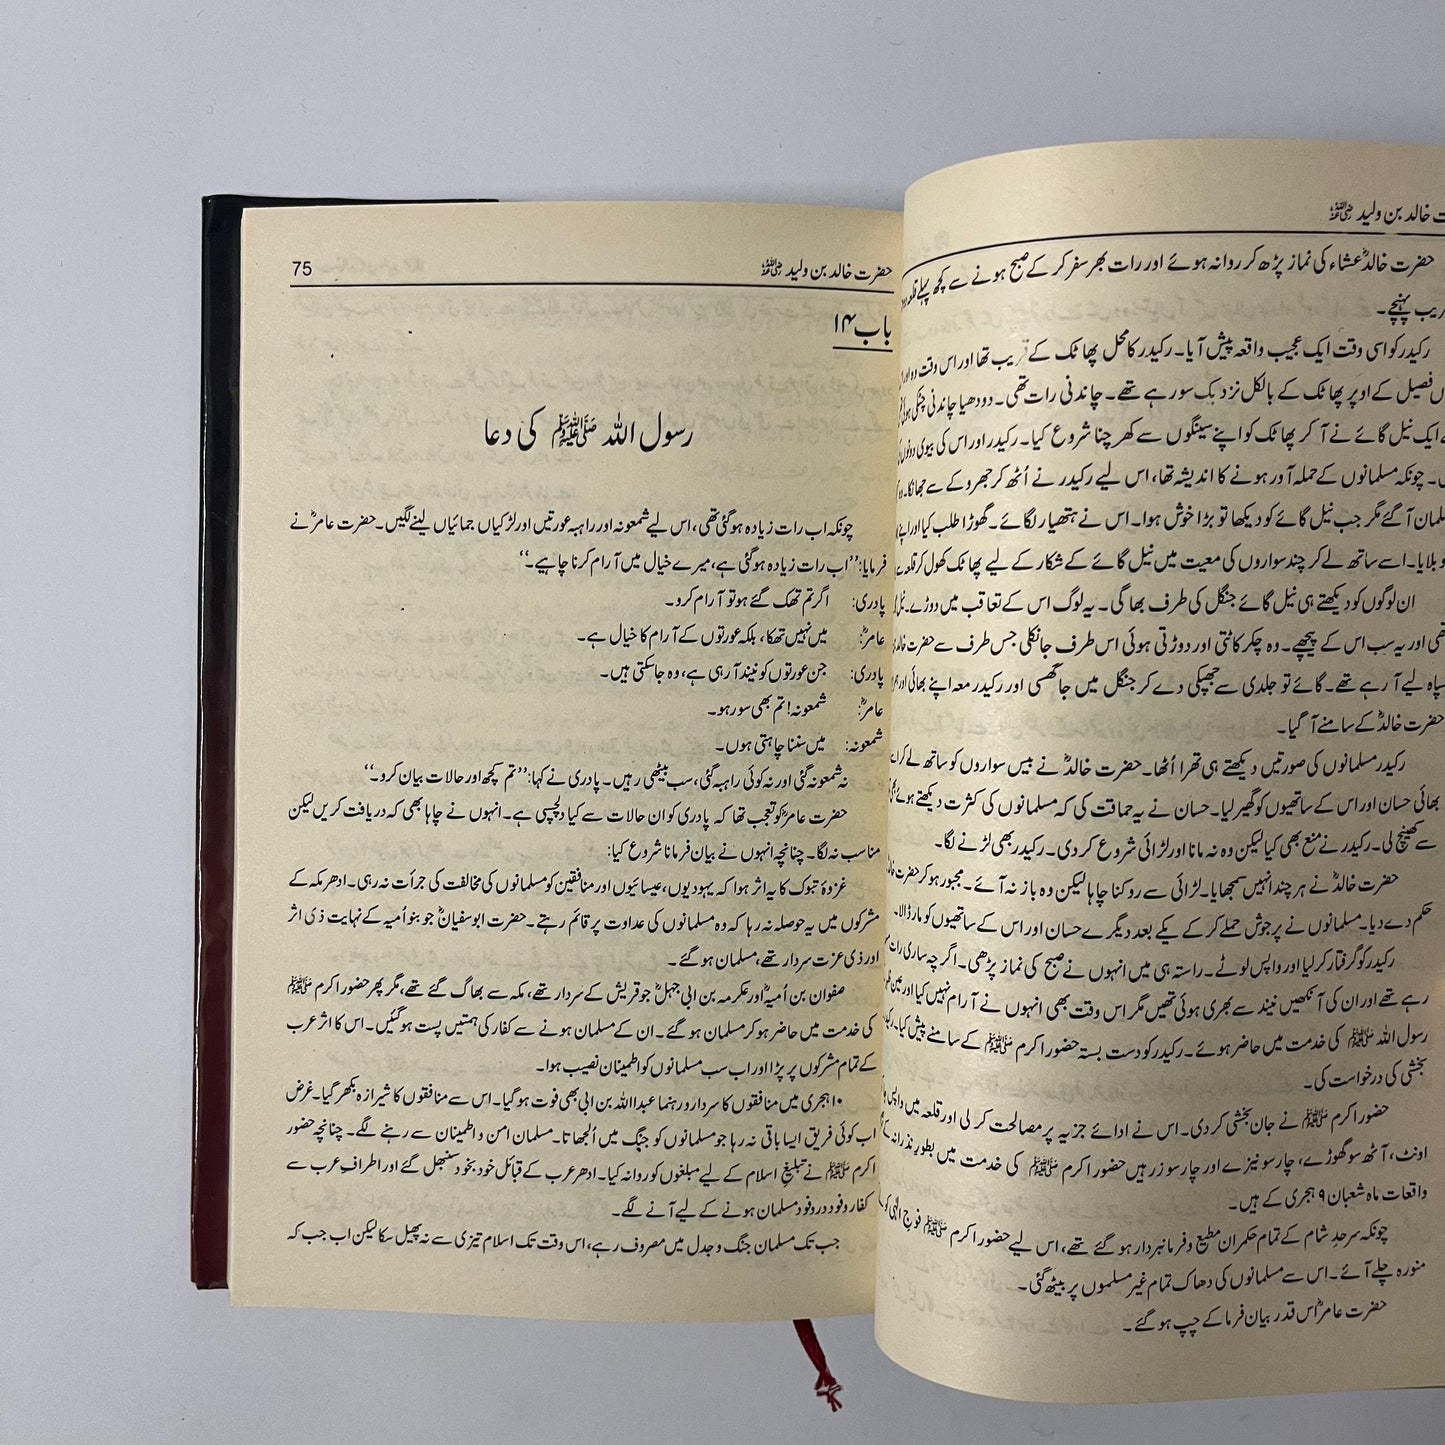 ت خالد بن ولید ؓ
حضرت خالدؓ عشاء کی نماز پڑھ کر روانہ ہوئے اور رات بھر سفر کر کے صبح ہونے سے کچھ پہلے قلعہ
پہنچے۔
رکیدر کو اسی وقت ایک عجیب واقعہ پیش آیا۔ رکیدر کا محل پھاٹک کے قریب تھا اور اس وقت وہ اور
فصیل کے اوپر پھاٹک کے بالکل نزدیک سو رہے تھے۔ چاندنی رات تھی۔ دودھیا چاندنی چٹکی ہوئی
ایک نیل گائے نے آ کر پھاٹک کو اپنے سینگوں سے کھرچنا شروع کیا۔ رکیدر اور اس کی بیوی دونوں
۔ چونکہ مسلمانوں کے حملہ آور ہونے کا اندیشہ تھا، اس لیے رکیدر نے اُٹھ کر جھروکے سے جھانکا۔ وہ
لمان آ گئے مگر جب نیل گائے کو دیکھا تو بڑا خوش ہوا۔ اس نے ہتھیار لگائے۔ گھوڑا طلب کیا اور اپنے
و بلایا۔ اسے ساتھ لے کر چند سواروں کی معیت میں نیل گائے کے شکار کے لیے پھاٹک کھول کر قلعہ
ان لوگوں کو دیکھتے ہی نیل گائے جنگل کی طرف بھاگی۔ یہ لوگ اس کے تعاقب میں دوڑے۔ نیل
تھی اور یہ سب اس کے پیچھے۔ وہ چکر کاٹتی اور دوڑتی ہوئی اس طرف جا نکلی جس طرف سے حضرت خالد
سپاہ لیے آ رہے تھے۔ گائے تو جلدی سے جھپکی دے کر جنگل میں جا گھسی اور رکیدر معہ اپنے بھائی اور
حضرت خالدؓ کے سامنے آ گیا۔
رکیدر مسلمانوں کی صورتیں دیکھتے ہی تھرا اُٹھا۔ حضرت خالدؓ نے بیس سواروں کو ساتھ لے کر
بھائی حسان اور اس کے ساتھیوں کو گھیر لیا۔ حسان نے یہ حماقت کی کہ مسلمانوں کی کثرت دیکھتے ہوئے
سے کھینچ لی۔ رکیدر نے منع بھی کیا لیکن وہ نہ مانا اور لڑائی شروع کر دی۔ رکیدر بھی لڑنے لگا۔
حضرت خالدؓ نے ہر چند انہیں سمجھایا۔ لڑائی سے روکنا چاہا لیکن وہ باز نہ آئے۔ مجبور ہو کر حضرت
حکم دے دیا۔ مسلمانوں نے پرجوش حملے کر کے یکے بعد دیگرے حسان اور اس کے ساتھیوں کو مار ڈالا۔
رکیدر کو گرفتار کر لیا اور واپس لوٹے۔ راستہ ہی میں انہوں نے صبح کی نماز پڑھی۔ اگرچہ ساری رات
رہے تھے اور ان کی آنکھیں نیند سے بھری ہوئی تھیں مگر اس وقت بھی انہوں نے آرام نہیں کیا اور
رسول اللہ ﷺ کی خدمت میں حاضر ہوئے۔ رکیدر کو دست بستہ حضور اکرم ﷺ کے سامنے پیش کیا۔
بخشی کی درخواست کی۔
حضور اکرم ﷺ نے جان بخشی کر دی۔ اس نے ادائے جزیہ پر مصالحت کر لی اور قلعہ میں واپس
اونٹ، آٹھ سو گھوڑے، چار سو نیزے اور چار سو زرہیں حضور اکرم ﷺ کی خدمت میں بطور نذرانہ
واقعات ماہ شعبان ۹ ہجری کے ہیں۔
چونکہ سرحدِ شام کے تمام حکمران مطیع و فرمانبردار ہو گئے تھے، اس لیے حضور اکرم ﷺ فوجِ الٰہی کو
منورہ چلے آئے۔ اس سے مسلمانوں کی دھاک تمام غیر مسلموں پر بیٹھ گئی۔
حضرت عامرؓ اس قدر بیان فرما کے چپ ہو گئے۔
حضرت خالد بن ولید ؓ
75
باب ۱۴
رسول اللہ ﷺ کی دعا
چونکہ اب رات زیادہ ہو گئی تھی، اس لیے شمعونہ اور راہبہ عورتیں اور لڑکیاں جمائیاں لینے لگیں۔ حضرت عامرؓ نے
فرمایا: ’’اب رات زیادہ ہو گئی ہے، میرے خیال میں آرام کرنا چاہیے۔‘‘
پادری: اگر تم تھک گئے ہو تو آرام کرو۔
عامرؓ: میں نہیں تھکا، بلکہ عورتوں کے آرام کا خیال ہے۔
پادری: جن عورتوں کو نیند آ رہی ہے، وہ جا سکتی ہیں۔
عامرؓ: شمعونہ! تم بھی سو رہو۔
شمعونہ: میں سننا چاہتی ہوں۔
نہ شمعونہ گئی اور نہ کوئی راہبہ گئی، سب بیٹھی رہیں۔ پادری نے کہا: ’’تم کچھ اور حالات بیان کرو۔‘‘
حضرت عامرؓ کو تعجب تھا کہ پادری کو ان حالات سے کیا دلچسپی ہے۔ انہوں نے چاہا بھی کہ دریافت کریں لیکن
مناسب نہ لگا۔ چنانچہ انہوں نے بیان فرمانا شروع کیا:
غزوۂ تبوک کا یہ اثر ہوا کہ یہودیوں، عیسائیوں اور منافقین کو مسلمانوں کی مخالفت کی جرأت نہ رہی۔ ادھر مکہ کے
مشرکوں میں یہ حوصلہ نہ رہا کہ وہ مسلمانوں کی عداوت پر قائم رہتے۔ حضرت ابوسفیانؓ جو بنو اُمیہ کے نہایت ذی اثر
اور ذی عزت سردار تھے، مسلمان ہو گئے۔
صفوان بن اُمیہؓ اور عکرمہ بن ابی جہلؓ جو قریش کے سردار تھے، مکہ سے بھاگ گئے تھے، مگر پھر حضور اکرم ﷺ
کی خدمت میں حاضر ہو کر مسلمان ہو گئے۔ ان کے مسلمان ہونے سے کفار کی ہمتیں پست ہو گئیں۔ اس کا اثر عرب
کے تمام مشرکوں پر پڑا اور اب سب مسلمانوں کو اطمینان نصیب ہوا۔
۱۰ ہجری میں منافقوں کا سردار و رہنما عبداللہ بن ابی بھی فوت ہو گیا۔ اس سے منافقوں کا شیرازہ بکھر گیا۔ غرض
اب کوئی فریق ایسا باقی نہ رہا جو مسلمانوں کو جنگ میں اُلجھاتا۔ مسلمان امن و اطمینان سے رہنے لگے۔ چنانچہ حضور
اکرم ﷺ نے تبلیغِ اسلام کے لیے مبلغوں کو روانہ کیا۔ ادھر عرب کے قبائل خود بخود سنبھل گئے اور اطرافِ عرب سے
کفار وفود در وفود مسلمان ہونے کے لیے آنے لگے۔
جب تک مسلمان جنگ و جدل میں مصروف رہے، اس وقت تک اسلام تیزی سے نہ پھیل سکا لیکن اب جب کہ